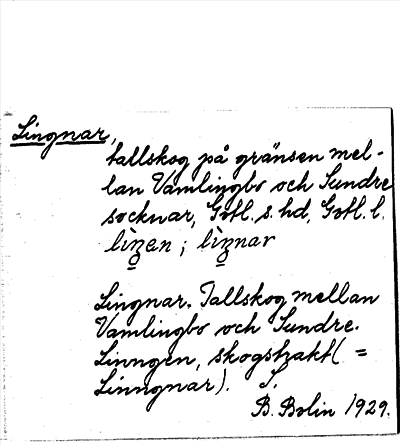 Lingnar,
tallskog på gränsen mel-
lan Vamlingbo och Sundre
socknar, Gotl. s. hd, Gotl. l.
Lingnar. Tallskog mellan
Vamlingbo och Sundre.
Linngen, skogstrakt (=
Linngnar). S.
B. Bolin 1929.